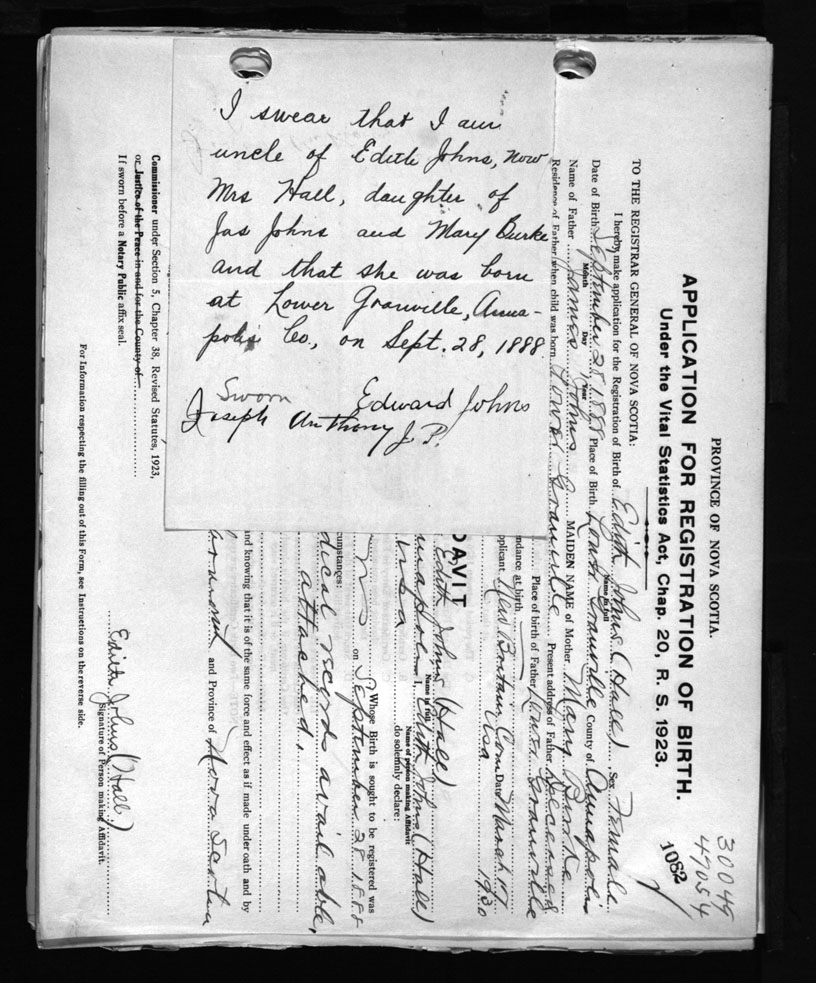 I swear that I am
uncle of Edith Johns, now
Mrs Hall, daughter of
Jas Johns and Mary Burke
and that she was born
at Lower Granville, Anna-
polis Co, on Sept. 28, 1888
Sworn Edward Johns
Joseph Anthony J. P.
30049
47054
1082
PROVINCE OF NOVA SCOTIA.
APPLICATION FOR REGISTRATION OF BIRTH.
Under the Vital Statistics Act, Chap. 20, R. S. 1923.
TO THE REGISTRAR GENERAL OF NOVA SCOTIA:
I hereby make application for the Registration of Birth of Edith Johns (Hall) Sex Female
Name in full
Date of Birth September 28 1888 Place of Birth Lower Granville County of Annapolis
Month Day Year
Name of Father James Johns MAIDEN NAME of Mother Mary Burke
Residence of Father when child was born Lower Granville Present address of Father Deceased
Place of birth of Father Lower Granville
ndance at birth
pplicant New Britain Conn Date March 17 1930
Usa
DAVIT
Edith Johns (Hall)
Name in full
nnapolis I, Edith Johns (Hall)
Name of person making Affidavit
do solemnly declare:
Whose Birth is sought to be registered was
on September 28 1888
cumstances:
dical records available,
attached.
and knowing that it is of the same force and effect as if made under oath and by
and Province of Nova Scotia
Edith Johns (Hall)
Signature of Person making Affidavit.
Commissioner under Section 5, Chapter 38, Revised Statutes, 1923,
or Justice of the Peace in and for the County of
If sworn before a Notary Public affix seal.
For Information respecting the filling out of this Form, see Instructions on the reverse side.